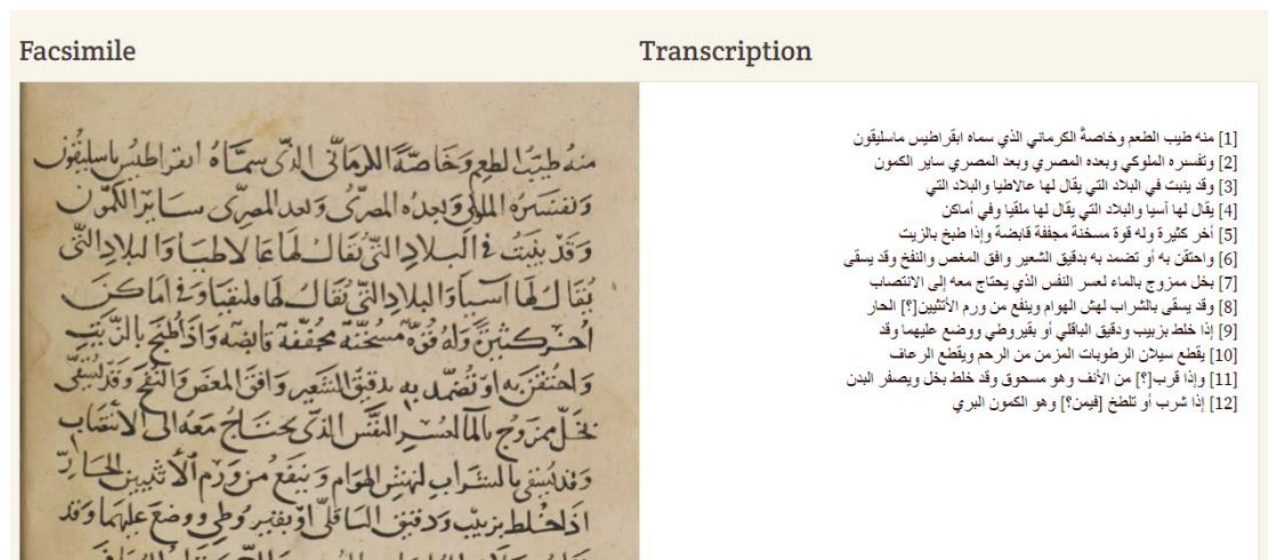 Facsimile
Transcription
منه طيب الطعم وخاصةً الكرماني الذي سماه ابقراطيس باسليقون
وتفسيره الملوكي وبعده المصري وبعد المصري ساير الكمون
وقد ينبت في البلاد التي يقال لها غالاطيا والبلاد التي
يقال لها آسيا والبلاد التي يقال لها ملقيا وفي اماكن
اخر كثيرة وله قوة مسخنة مجففة قابضة واذا طبخ بالزيت
واحتقن به او تضمد به بدقيق الشعير وافق المغص والنفخ وقد يسقى
بخل ممزوج بالما لعسر النفس الذي يحتاج معه الى الانتصاب
وقد يسقى بالشراب لنهش الهوام وينفع من ورم الانثيين الحار
اذا خلط بزبيب ودقيق الباقلى او بقيروطي ووضع عليهما وقد
[1] منه طيب الطعم وخاصةً الكرماني الذي سماه ابقراطيس ماسليقون
[2] وتفسره الملوكي وبعده المصري وبعد المصري ساير الكمون
[3] وقد ينبت في البلاد التي يقال لها عالاطيا والبلاد التي
[4] يقال لها آسيا والبلاد التي يقال لها ملقيا وفي أماكن
[5] أخر كثيرة وله قوة مسخنة مجففة قابضة وإذا طبخ بالزيت
[6] واحتقن به أو تضمد به بدقيق الشعير وافق المغص والنفخ وقد يسقى
[7] بخل ممزوج بالماء لعسر النفس الذي يحتاج معه إلى الانتصاب
[8] وقد يسقى بالشراب لهش الهوام وينفع من ورم الأنثيين[؟] الحار
[9] إذا خلط بزبيب ودقيق الباقلي أو بقيروطي ووضع عليهما وقد
[10] يقطع سيلان الرطوبات المزمن من الرحم ويقطع الرعاف
[11] وإذا قرب[؟] من الأنف وهو مسحوق وقد خلط بخل ويصفر البدن
[12] إذا شرب أو تلطخ [فيمن؟] وهو الكمون البري